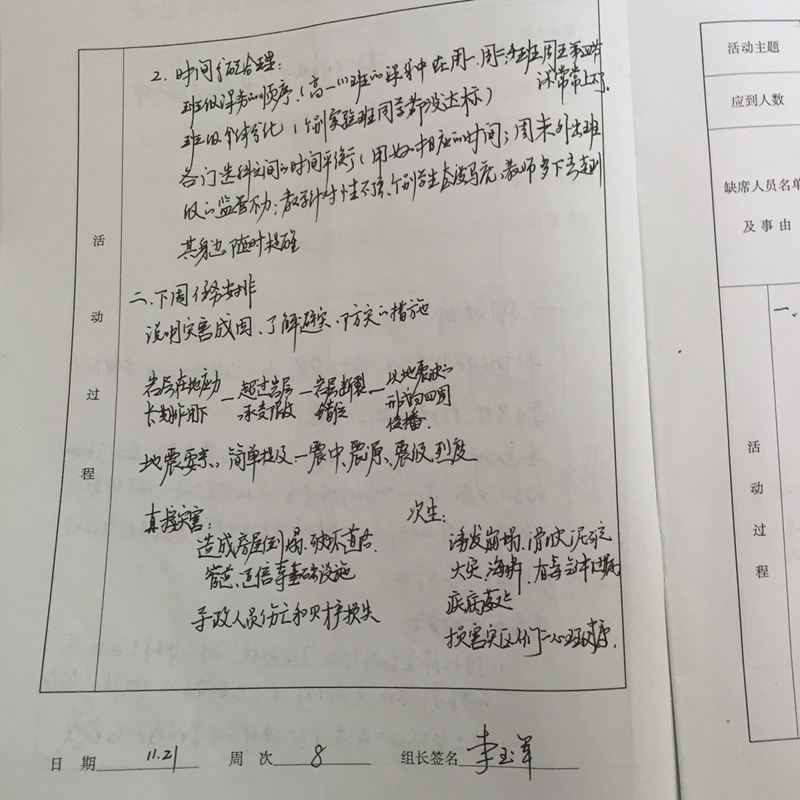 2. 时间分配合理:
班级课务的顺序.(高一(1)班的课集中在周一、周二,
课常常上不
班级个体分化(个别实验班同学都没达标)
各门选科之间的时间平衡(用好相应的时间;周末外出班
级的监管不力;教学针对性不强、个别学生态度马虎、教师多下去走到
其身边,随时提醒
二.下周任务安排
说明灾害成因、了解避灾、防灾的措施
岩层在地应力
长期作用下
—超过岩层
承受限度
—岩层断裂
错位
—以地震波的
形式向四周
传播.
地震要素: 简单提及—震中、震源、震级、烈度
直接灾害:
造成房屋倒塌、破坏道路、
管道、通信等基础设施
导致人员伤亡和财产损失
次生:
诱发崩塌、滑坡、泥石流
火灾、海啸、有毒气体泄漏
疾病蔓延
损害灾区人们心理
活动过程
日 期 11.21 周 次 8 组长签名 李玉军
活动主题
应到人数
缺席人员名单
及 事 由
一、
活动过程